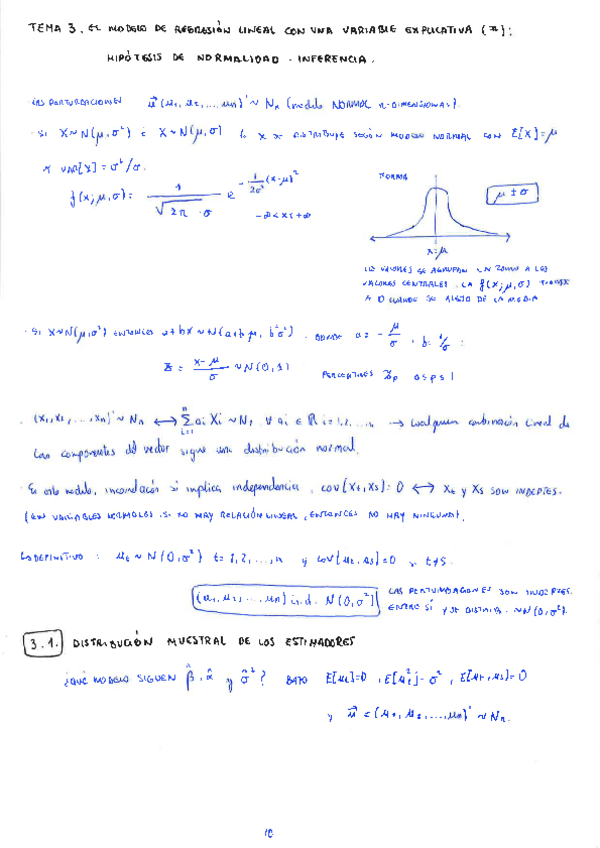 TEMA 3. EL MODELO DE REGRESIÓN LINEAL CON UNA VARIABLE EXPLICATIVA (*):
HIPÓTESIS DE NORMALIDAD - INFERENCIA.
· LAS PERTURBACIONES u⃗(μ₁, μ₂, ..., μn)' ~ Nn (modelo NORMAL n-DIMENSIONAL).
· SI X~N(μ, σ²) ó X~N(μ, σ) DISTRIBUYE SEGÚN MODELO NORMAL CON E[X]=μ
Y VAR[X] = σ²/σ.
f(x; μ, σ) = 1/(√2π · σ) e^(-1/2σ² (x-μ)²)
-∞<x<+∞
FORMA
μ ± σ
x=μ
LOS VALORES SE AGRUPAN EN TORNO A LOS
VALORES CENTRALES. LA f(x; μ, σ) TIENDE
A 0 CUANDO SE ALEJA DE LA MEDIA
· SI X~N(μ, σ²) ENTONCES a+bX ~N(a+bμ, b²σ²). DONDE a = -μ/σ, b = 1/σ :
Z = (x-μ)/σ ~N(0,1)
PERCENTILES Zp 0≤p≤1
· (X₁, X₂, ..., Xn)' ~ Nn ⟷ Σ(i=1, n) ai Xi ~ N₁ ∀ ai ∈ ℝ i=1,2,...,n → Cualquier combinación lineal de
las componentes del vector sigue una distribución normal.
· En este modelo, incorrelación sí implica independencia, cov(Xt, Xs)=0 ⟷ Xt y Xs SON INDEPTES.
(EN VARIABLES NORMALES SI NO HAY RELACIÓN LINEAL, ENTONCES NO HAY NINGUNA).
LO DEFINITIVO : μt ~ N(0, σ²) t=1,2,...,n y cov(μt, μs)=0 t≠s.
(μ₁, μ₂, ..., μn) i.i.d. N(0, σ²)
LAS PERTURBACIONES SON INDEPTES.
ENTRE SÍ Y SE DISTRIB. ~N(0, σ²).
3.1. DISTRIBUCIÓN MUESTRAL DE LOS ESTIMADORES
¿QUÉ MODELO SIGUEN β̂, α̂ y σ̂²? BAJO E[μt]=0, E[μt²]=σ², E[μt, μs]=0
y u⃗ = (μ₁, μ₂, ..., μn)' ~ Nn.
10